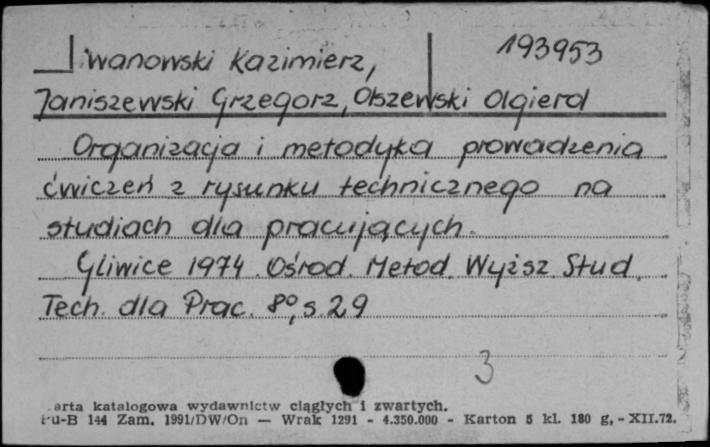 Iwanowski Kazimierz, 193953
Janiszewski Grzegorz, Olszewski Olgierd
Organizacja i metodyka prowadzenia
ćwiczeń z rysunku technicznego na
studiach dla pracujących.
Gliwice 1974. Ośrod. Metod. Wyższ. Stud.
Tech. dla Prac. 8°, s. 29
3
arta katalogowa wydawnictw ciągłych i zwartych.
Pu-B 144 Zam. 1991/DW/On — Wrak 1291 - 4.350.000 - Karton 5 kl. 180 g, - XII.72.